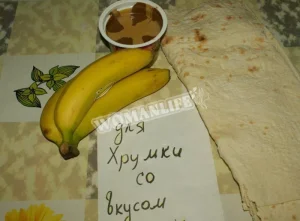 WOMANLIFE
для
Хрумки
со
вкусом